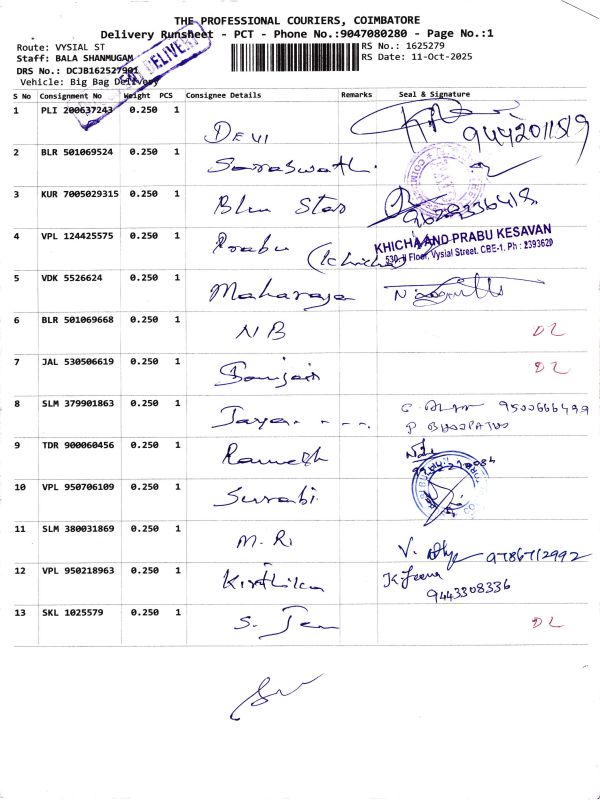 THE PROFESSIONAL COURIERS, COIMBATORE
Delivery Runsheet - PCT - Phone No.:9047080280 - Page No.:1
Route: VYSIAL ST
RS No.: 1625279
Staff: BALA SHANMUGAM
RS Date: 11-Oct-2025
DRS No.: DCJB162527901
Vehicle: Big Bag Delivery
DELIVERY
S No Consignment No Weight PCS Consignee Details Remarks Seal & Signature
1 PLI 200637243 0.250 1 DEVI 9442011519
2 BLR 501069524 0.250 1 Saraswathi
3 KUR 7005029315 0.250 1 Blue Star
4 VPL 124425575 0.250 1 Prabu
KHICHA AND PRABU KESAVAN
530, II Floor, Vysial Street, CBE-1. Ph : 2393620
5 VDK 5526624 0.250 1 Maharaja
6 BLR 501069668 0.250 1 NB DL
7 JAL 530506619 0.250 1 DL
8 SLM 379901863 0.250 1 Jaya - - - -
9 TDR 900060456 0.250 1 Ramesh
10 VPL 950706109 0.250 1 Surabi
11 SLM 380031869 0.250 1 M. Ri V. 9786712992
12 VPL 950218963 0.250 1 Kirthika K. Jeena
9443308336
13 SKL 1025579 0.250 1 S. Jen DL